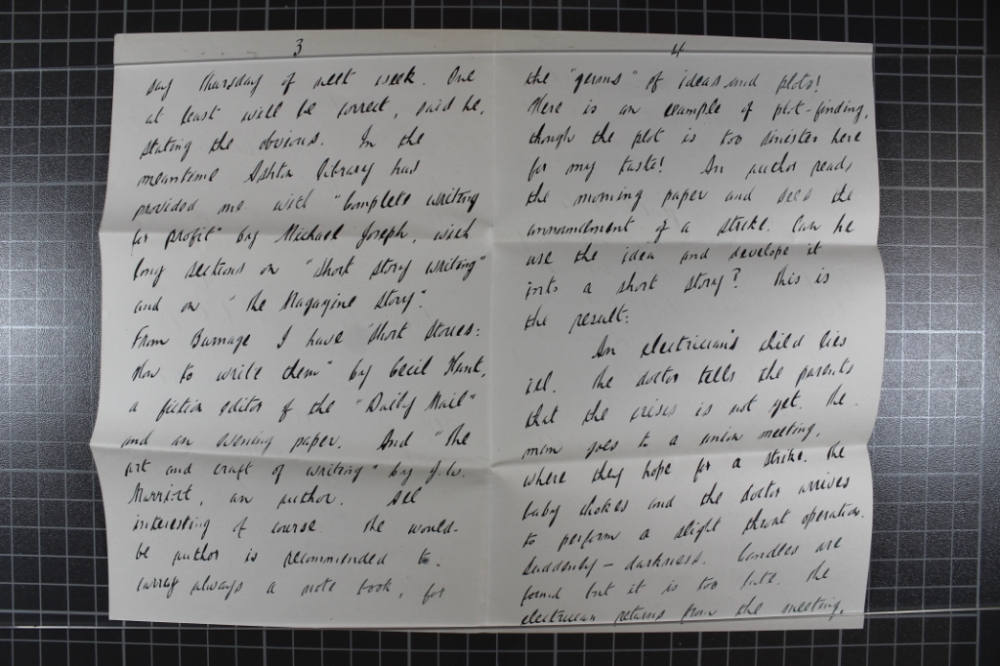 3
say Thursday of next week. One
at least will be correct, said he,
stating the obvious. In the
meantime Ashton Library has
provided me with "Complete writing
for profit" by Michael Joseph, with
long sections on "Short story writing"
and on "The Magazine Story".
From Burnage I have "Short Stories:
How to write them" by Cecil Hunt,
a fiction editor of the "Daily Mail"
and an evening paper. And "The
art and craft of writing" by J.W.
Marriott, an author. All
interesting of course. The would-
be author is recommended to
carry always a note book, for
4
the "germs" of ideas and plots!
Here is an example of plot-finding,
though the plot is too sinister here
for my taste! An author reads
the morning paper and sees the
announcement of a strike. Can he
use the idea and develope it
into a short story? This is
the result:
An electrician's child lies
ill. The doctor tells the parents
that the crisis is not yet. The
man goes to a union meeting,
where they hope for a strike. The
baby chokes and the doctor arrives
to perform a slight throat operation.
Suddenly - darkness. Candles are
found but it is too late. The
electrician returns from the meeting,